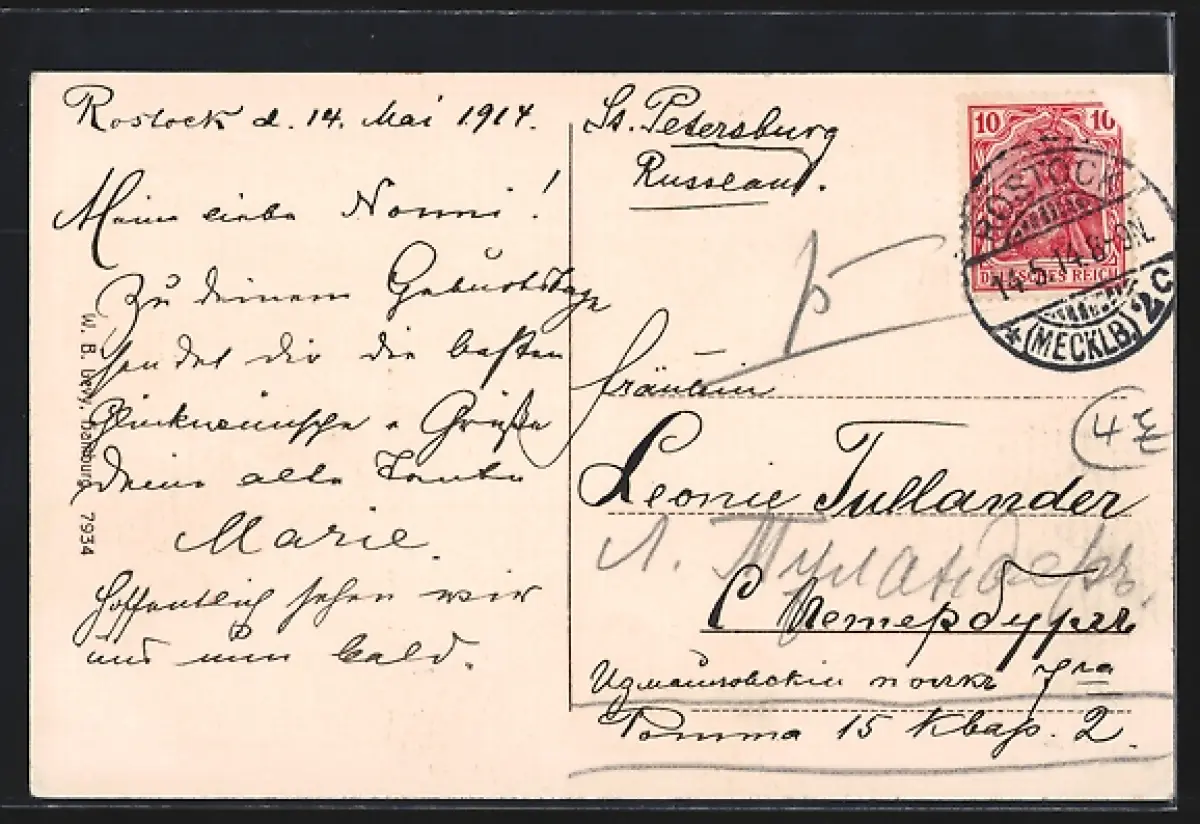 Rostock d. 14. Mai 1914.
Meine liebe Nonni!
Zu deinem Geburtstage
sendet dir die besten
Glückwünsche u Grüße
deine alte Tante
Marie.
Hoffentlich sehen wir
uns nun bald.
W. B. Levy, Hamburg 7934
St. Petersburg
Russland.
10 10
DEUTSCHES REICH
ROSTOCK
14.5.14.8-9N.
* (MECKLB.) 2c
Fräulein
4
Leonie Tullander
Л. Туландеръ.
С Петербургъ
Измайловскій полкъ 7ла
15 Квар. 2.